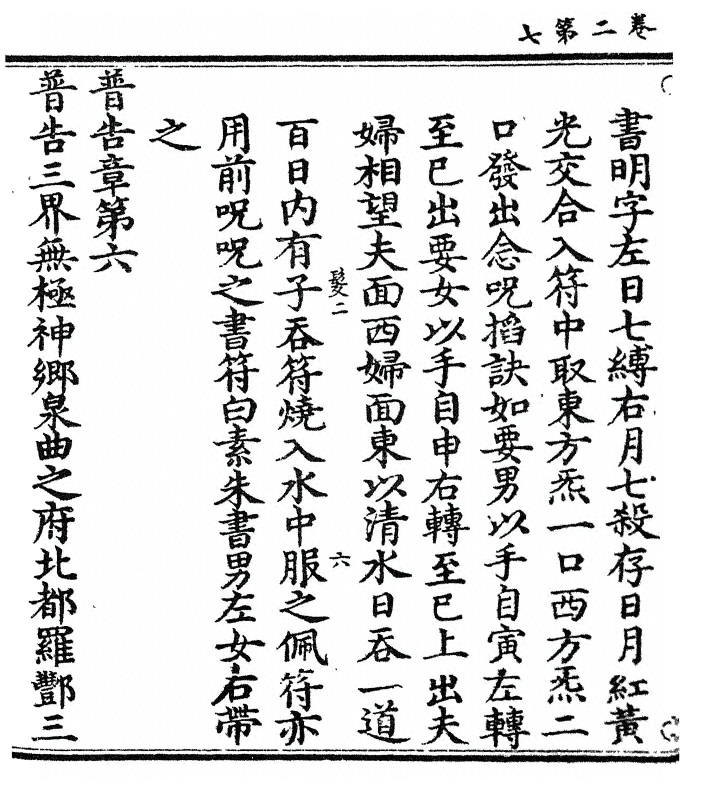 卷二第七
書明字左日七縛右月七殺存日月紅黃
光交合入符中取東方炁一口西方炁二
口發出念呪搯訣如要男以手自寅左轉
至巳出要女以手自申右轉至巳上出夫
婦相望夫面西婦面東以清水日吞一道
髮二
六
百日內有子吞符燒入水中服之佩符亦
用前呪呪之書符白素朱書男左女右帶
之
普告章第六
普告三界無極神鄉泉曲之府北都羅酆三